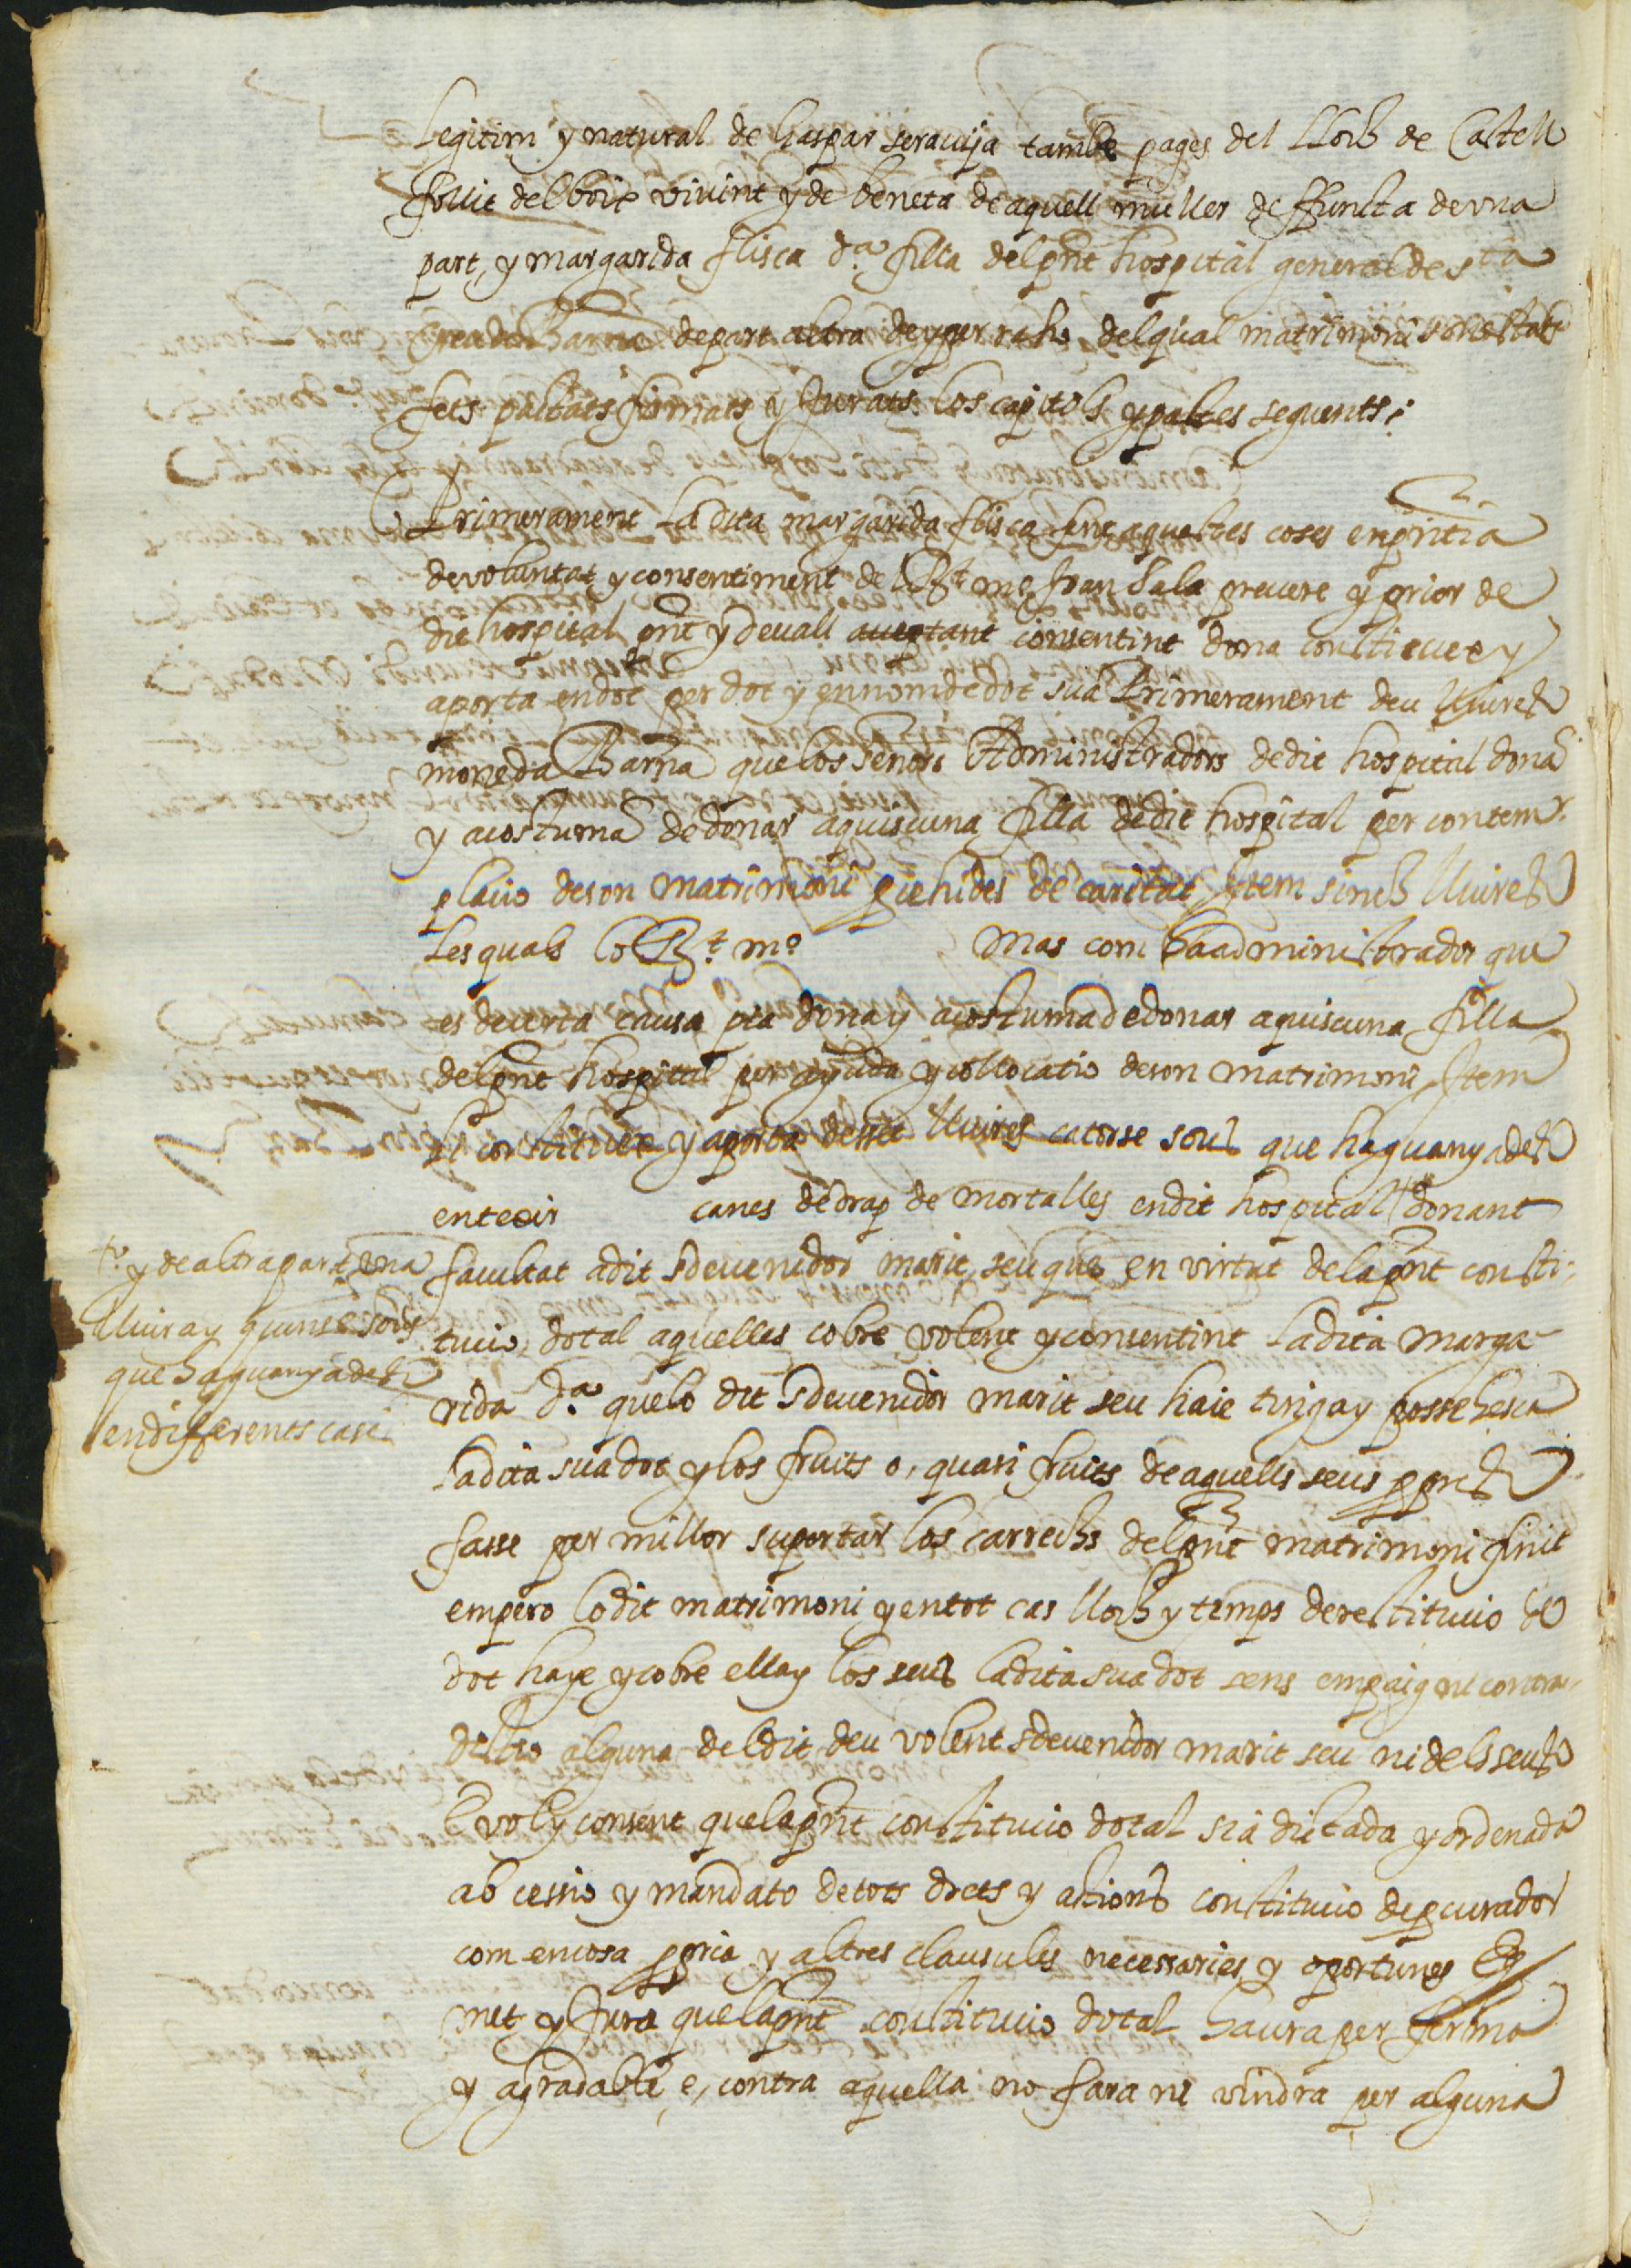 Legitim y natural de Gaspar seravija tambe pages del Lloch de Castell
follit del boix vivint y de beneta de aquell muller deffuncta de vna
part, y margarida flisca d.ª filla del pñt hospital general de sta
de part altra de y per raho del qual matrimoni son estats
fets pactats firmats y jurats los capitols y pactes seguents:
Primerament La dita margarida flisca fent aquestes coses en pñtia
de voluntat y consentiment del R.t m.º fran Sala prevere y prior de
dit hospital pñt y devall acceptant consentint dona constitueex y
aporta en dot per dot y en nom de dot sua Primerament deu lliures
moneda Barña que los señors Administradors de dit hospital dona
y acostuma de donar a quiscuna filla de dit hospital per contem
placio de son matrimoni pie hides de caritat Item sinch lliures
Les quals lo R.t m.º mas com ha administrador que
es de certa causa pia dona y acostuma de donar a quiscuna filla
del pñt hospital per ayuda y collocatio de son matrimoni Item
li constitueex y aporta desset lliures catorse sous que ha guanyades
en texir canes de drap de mortalles en dit hospital donant
facultat a dit sdevenidor marit seu que en virtut de la pñt consti
tucio dotal aquelles cobre volent y consentint La dita marga
rida d.ª que lo dit sdevenidor marit seu haie tinga y possehesca
La dita sua dot y los fruits o, quasi fruits de aquells seus ppris
fasse per millor suportar los carrechs del pñt matrimoni finit
empero lo dit matrimoni y en tot cas lloch y temps de restitucio de
dot haye y cobre ella y los seus la dita sua dot sens empaig ni contra
dictio alguna del dit deu volent sdevenidor marit seu ni dels seus
E vol y consent que la pñt constitucio dotal sia dictada y ordenada
ab cessio y mandato de tots drets y actions constitucio de pcurador
com en cosa ppria y altres clausules necessaries y oportunes E p
met y Jura que la pñt constitucio dotal haura per ferma
y agradable e, contra aquella no fara ni vindra per alguna
y de altra part vna
lliura y quinse sous
que ha guanyades
en differents cases